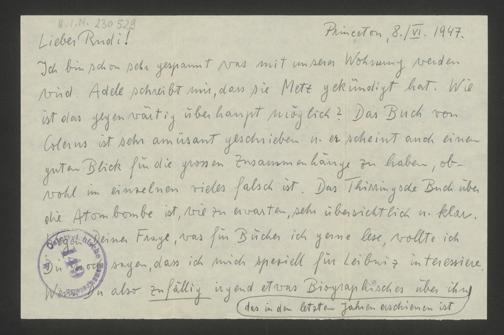 H.I.N. 230529
Princeton, 8./VI. 1947.
Lieber Rudi!
Ich bin schon sehr gespannt was mit unserer Wohnung werden
wird. Adele schreibt mir, dass sie Metz gekündigt hat. Wie
ist das gegenwärtig überhaupt möglich? Das Buch von
Colerus ist sehr amüsant geschrieben u. er scheint auch einen
guten Blick für die grossen Zusammenhänge zu haben, ob-
wohl im einzelnen vieles falsch ist. Das Thirringsche Buch über
die Atombombe ist, wie zu erwarten, sehr übersichtlich u. klar.
Wegen Deiner Frage, was für Bücher ich gerne lese, wollte ich
noch sagen, dass ich mich speziell für Leibniz interessiere.
Wenn Du also zufällig irgend etwas Biographisches über ihn
das in den letzten Jahren erschienen ist